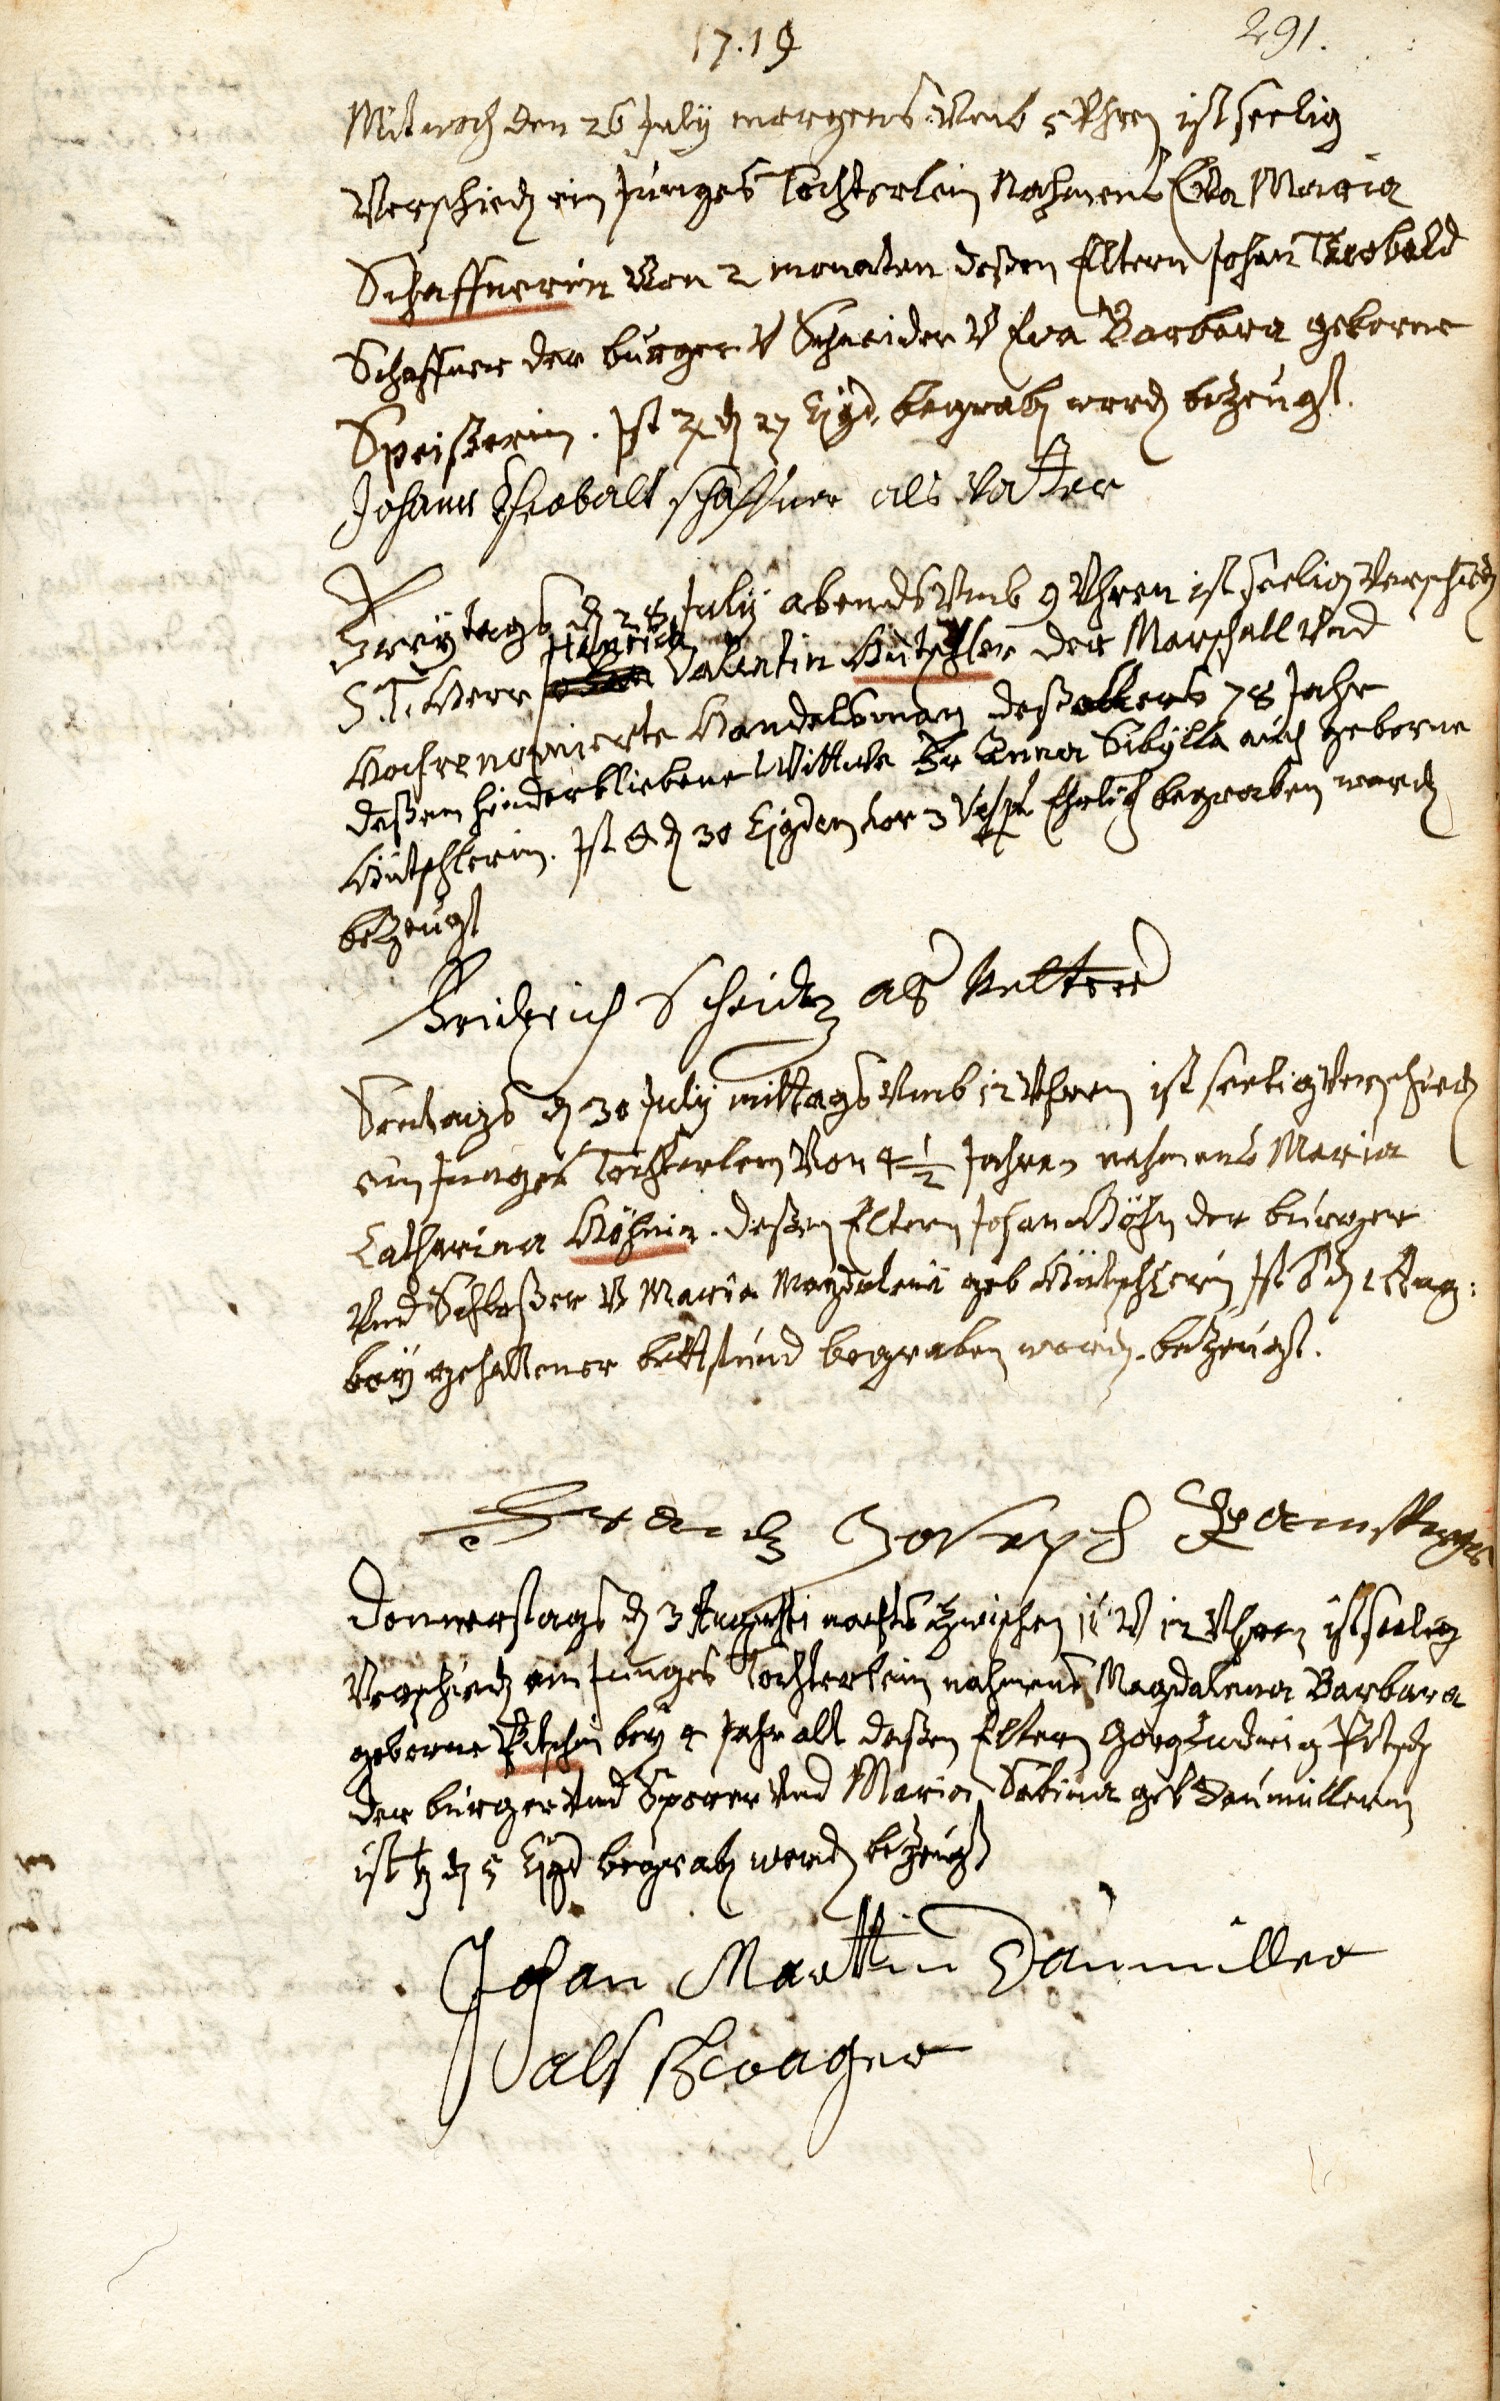 17.19
291.
Mitwoch den 26 July morgens Vmb 5 Vhren ist seelig
Verschied ein Junges Tochterlein Nahmens Eva Maria
Schaffnerin Von 2 monaten deßen Eltern Johan Theobald
Schaffner der burger V Schneider V Eva Barbara geborne
Speißerin. Ist ♃ d 27 Ejgd. begrab word bezeugt.
Johann Theobalt schaffner als Vatter
Freytags d 28 July abends Vmb 9 Vhren ist seelig Verschied
Henrich
S. T. Herr Valentin Hütschler der Marschall Vnd
Hochrenomierte Handelsman deß alters 78 Jahr
deßem hinderbliebene Wittwe Fr Anna Sibylla auch geborne
Hütschlerin. Ist d 30 Ejgdem vor 3 Vesp Ehrlich begraben word
bezeugt
Friderich Scheidt als Vetter
Sontags d 30 July mittags Vmb 12 Vhren ist seelig Verschied
ein Junges Tochterlein Von 4 1/2 Jahren nahmens Maria
Catharina Höhnin. deßen Eltern Johan Höhn der burger
Vnd Schloßer V Maria Magdalena geb Hütschlerin Ist d 1 Aug:
bey gehaltener bettstund begraben word. bezeugt.
Frantz Joseph
Donnerstags d 3 Augusti nachts zwischen 11 V 12 Vhren ist seelig
Verschied ein Junges Tochterlein nahmens Magdalena Barbara
geborne Petschin bey 4 Jahr alt deßen Eltern Georg Ludwig Petsch
der burger Vnd Sporer Vnd Maria Sabina geb Daumüllerin
ist ♄ d 5 Ejgd begrab word bezeugt
Johan Marttin Daumiller
als schwager